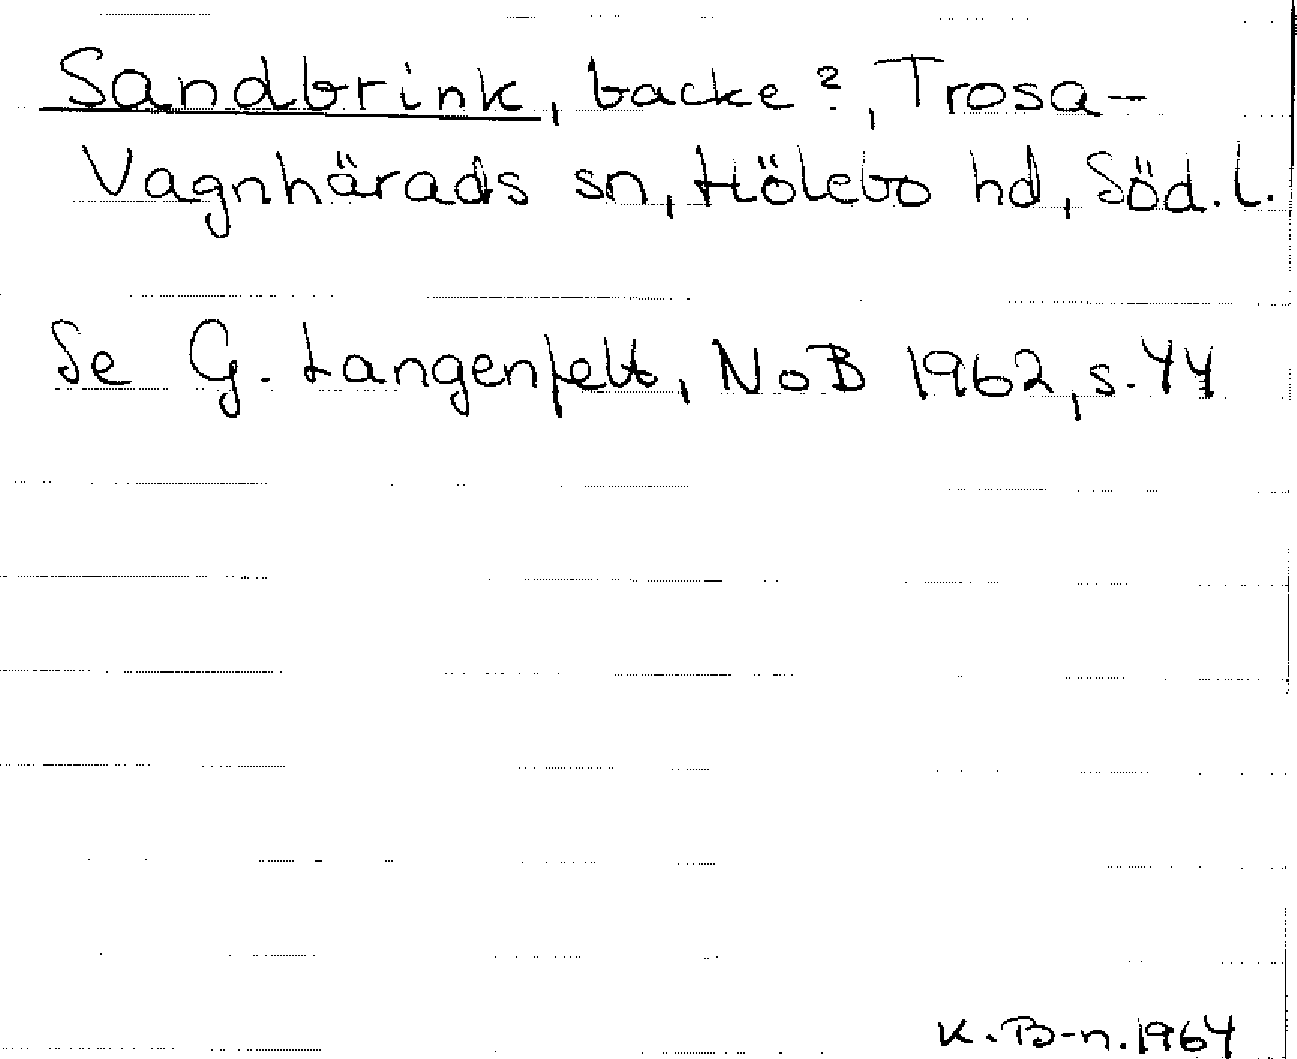 Sandbrink, backe?, Trosa-
Vagnhärads sn, Hölebo hd, Söd.l.
Se G. Langenfelt, NoB 1962, s. 44
K. B-n. 1964